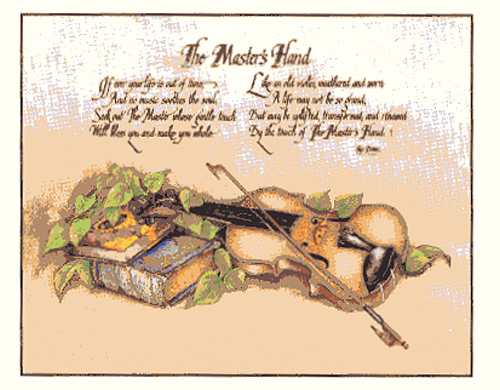 The Master's Hand
If ever your life is out of tune,
And no music soothes the soul,
Seek out The Master whose gentle touch
Will bless you and make you whole.
Like an old violin, weathered and worn
A life may not be so grand,
But may be uplifted, transformed, and renewed
By the touch of The Master's Hand.